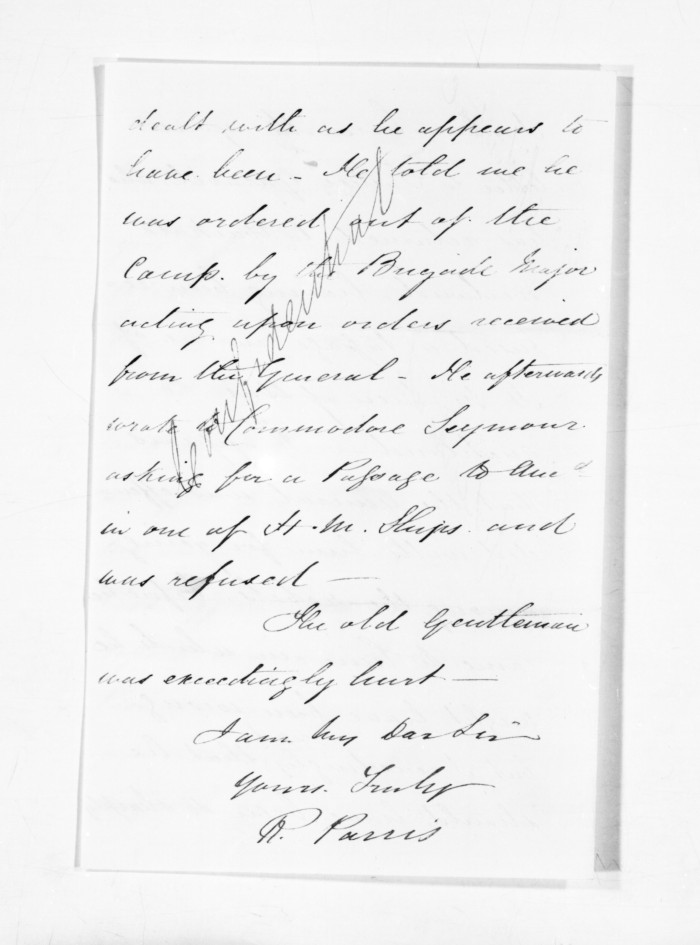 dealt with as he appears to
have been - He told me he
was ordered out of the
Camp. by the Brigade Major
acting upon orders received
from the General - He afterwards
wrote to Commodore Seymour
asking for a Passage to Auc^d
in one of H. M. Ships and
was refused -
The old Gentleman
was exceedingly hurt -
I am My Dear Sir
Yours Truly
R. Parris
Confidential